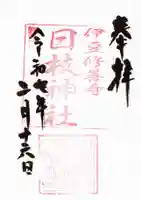 奉拝
伊豆修善寺
日枝神社
令和七年二月十六日